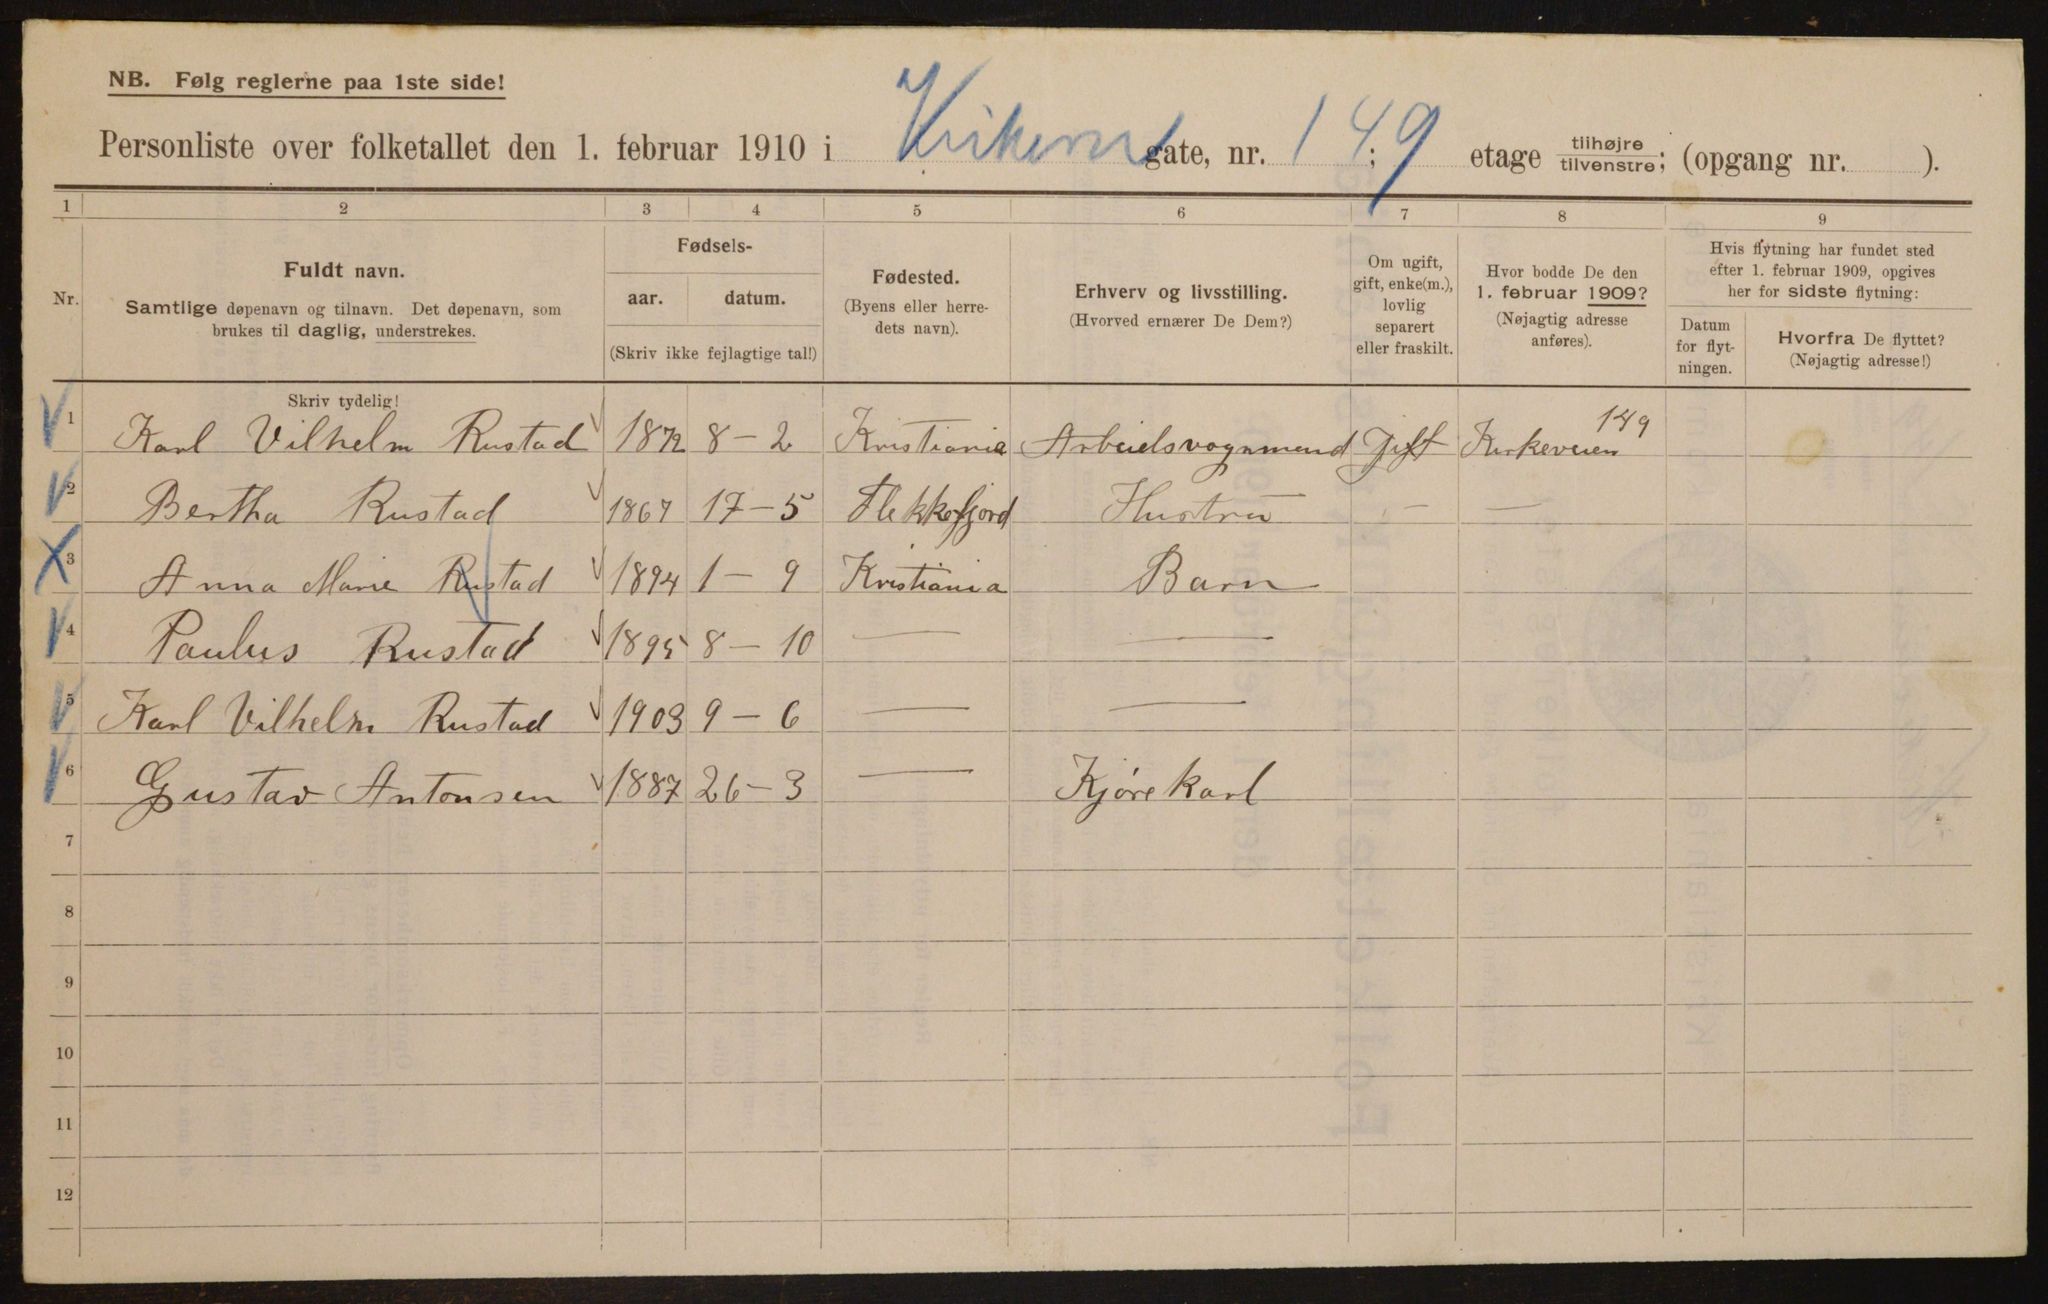 NB. Følg reglerne paa 1ste side!
Personliste over folketallet den 1. februar 1910 i Kirkevei gate, nr. 149; etage tilhøjre tilvenstre; (opgang nr. ).
1 2 3 4 5 6 7 8 9
Nr.
Fuldt navn.
Samtlige døpenavn og tilnavn. Det døpenavn, som
brukes til daglig, understrekes.
Fødsels-
aar. datum.
(Skriv ikke fejlagtige tal!)
Fødested.
(Byens eller herre-
dets navn).
Erhverv og livsstilling.
(Hvorved ernærer De Dem?)
Om ugift,
gift, enke(m.),
lovlig
separert
eller fraskilt.
Hvor bodde De den
1. februar 1909?
(Nøjagtig adresse
anføres).
Hvis flytning har fundet sted
efter 1. februar 1909, opgives
her for sidste flytning:
Datum
for flyt-
ningen.
Hvorfra De flyttet?
(Nøjagtig adresse!)
Skriv tydelig!
1 Karl Vilhelm Rustad 1872 8 – 2 Kristiania Arbeidsvognmend Gift Kirkeveien 149
2 Bertha Rustad 1867 17 – 5 Flekkefjord Hustru – –
3 Anna Marie Rustad 1894 1 – 9 Kristiania Barn
4 Paulus Rustad 1895 8 – 10 — —
5 Karl Vilhelm Rustad 1903 9 – 6 — —
6 Gustav Antonsen 1887 26 – 3 — Kjørekarl
7
8
9
10
11
12